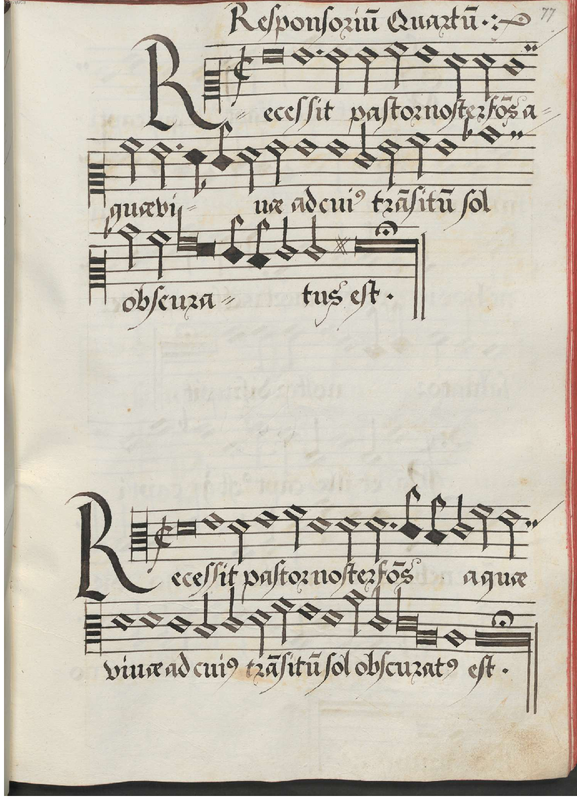 Responsoriū Quartū.
77
Recessit pastor noster fōs a-
quæ vi- uæ ad cuiꝰ trāsitū sol
obscura- tus est.
Recessit pastor noster fōs aquæ
viuæ ad cuiꝰ trāsitū sol obscuratꝰ est.